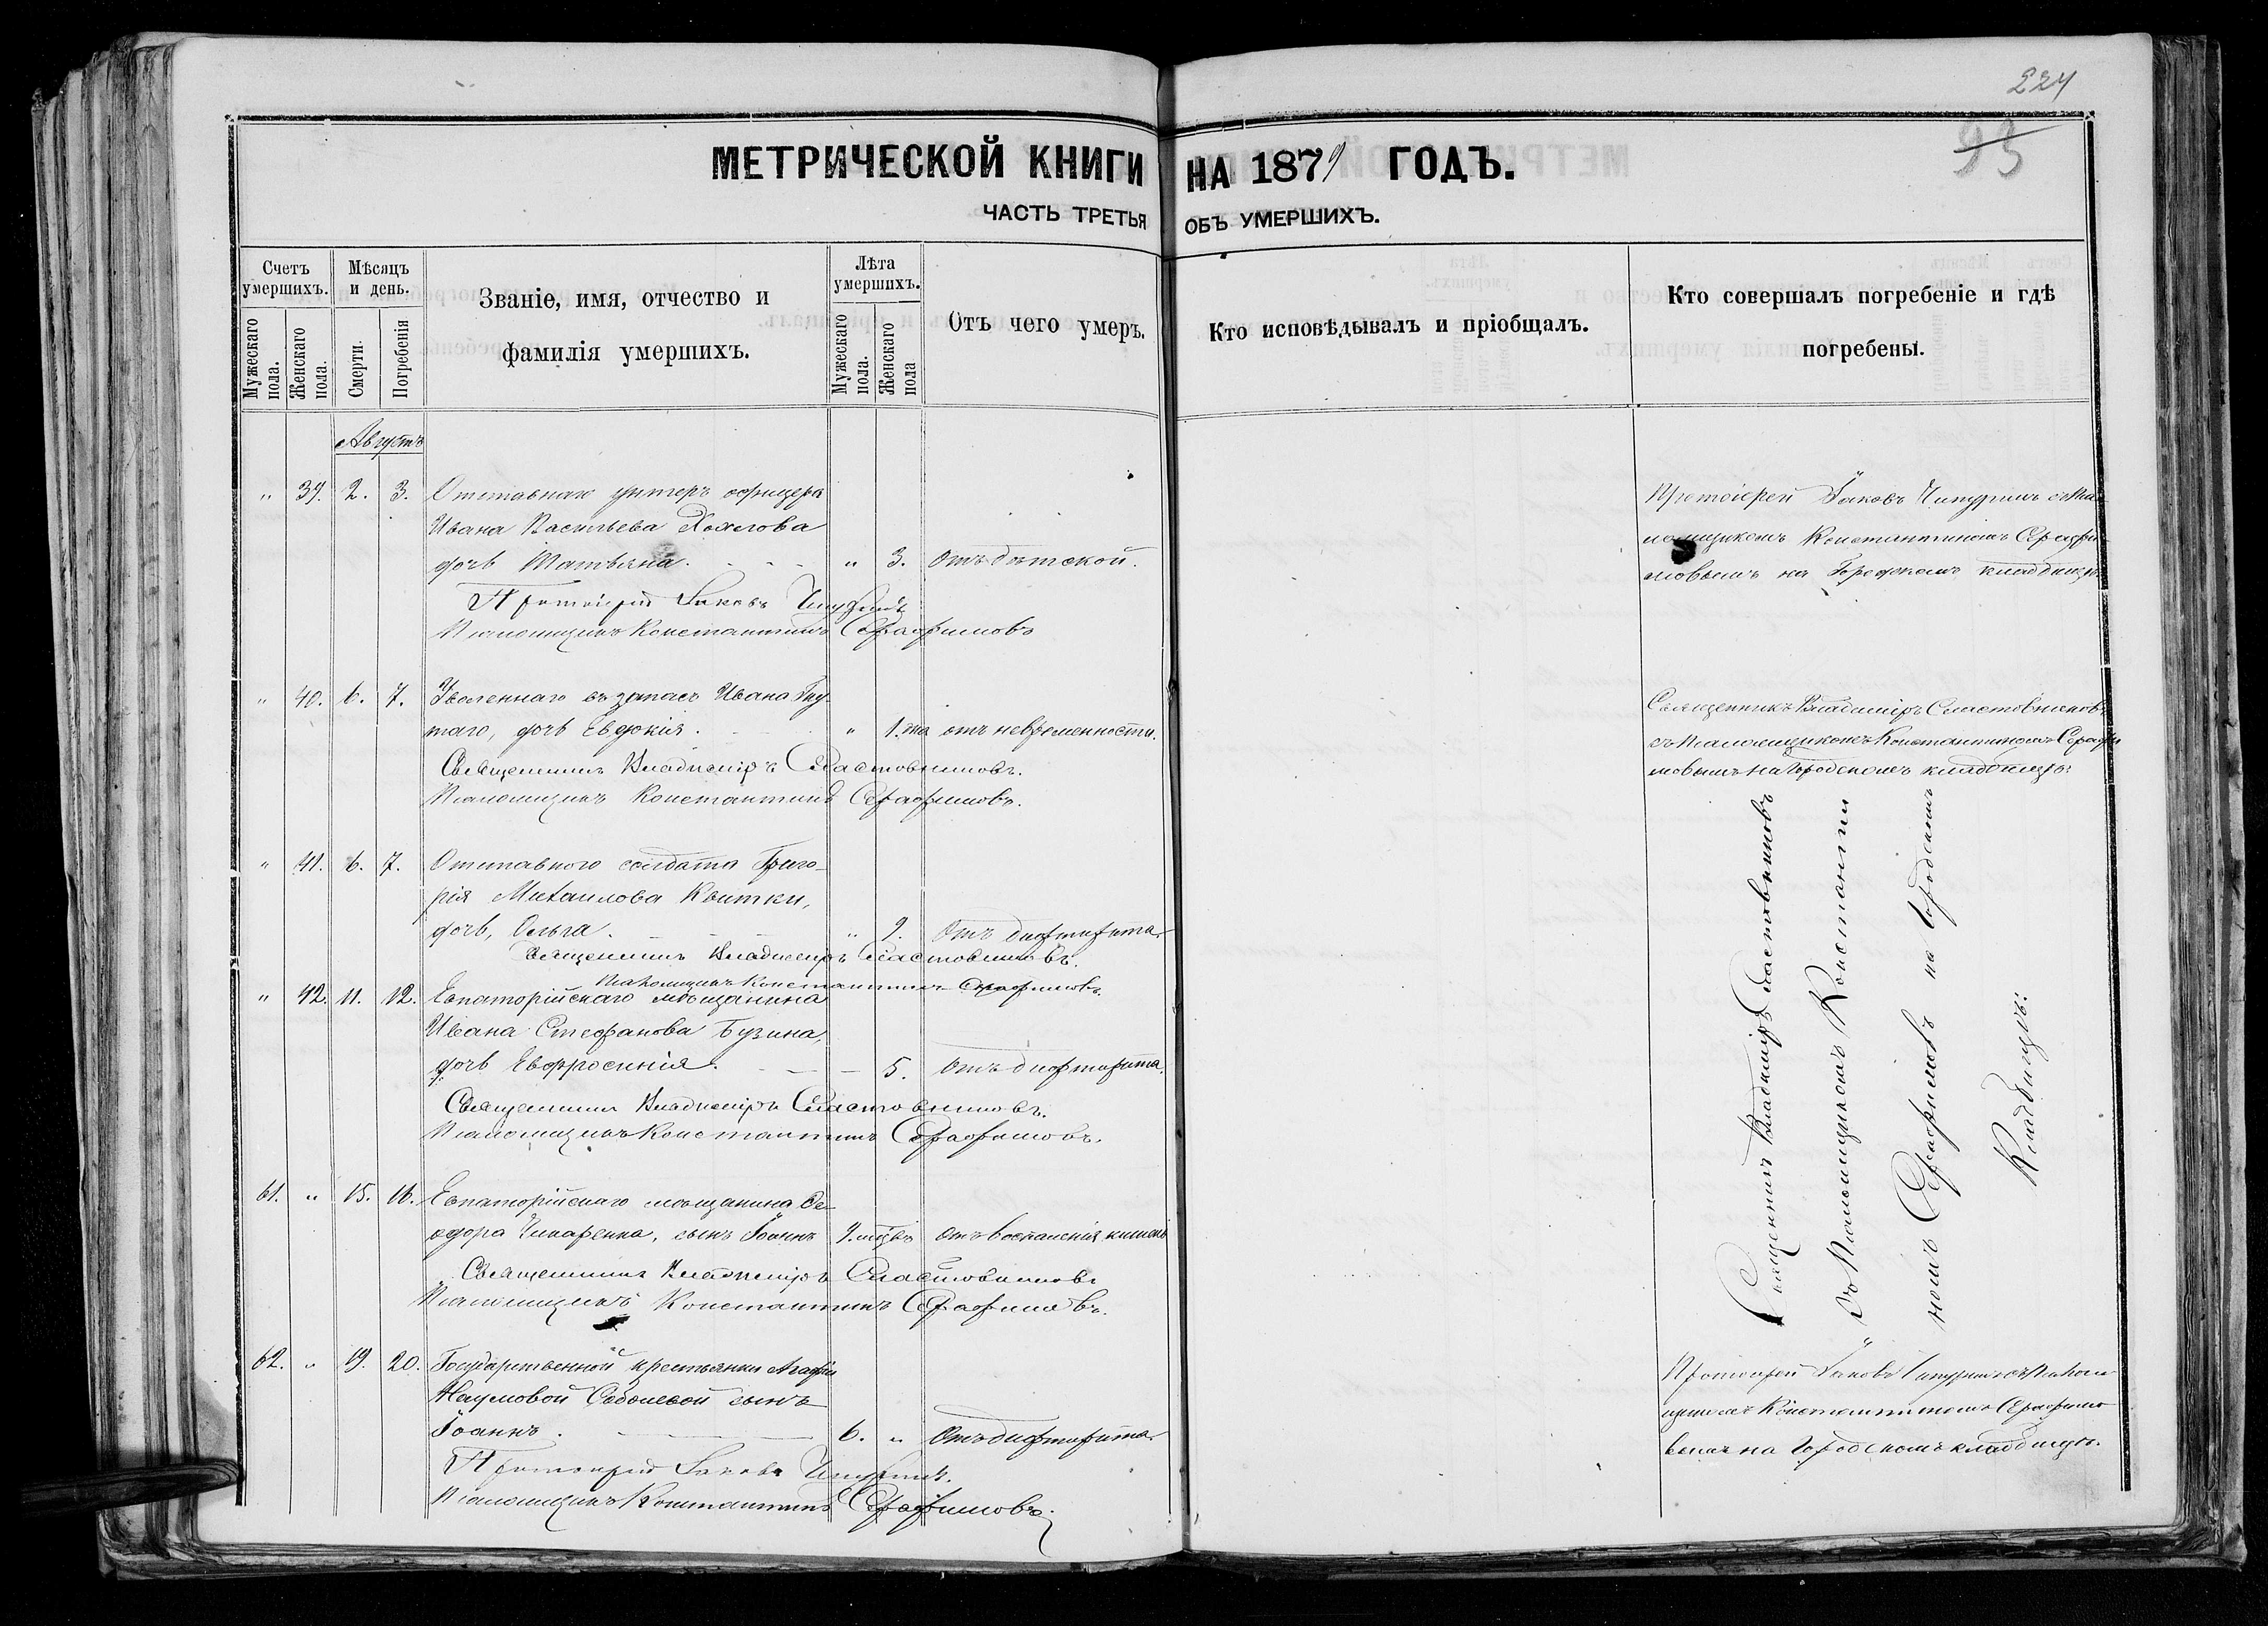 224
93
МЕТРИЧЕСКОЙ КНИГИ НА 1879 ГОДЪ.
ЧАСТЬ ТРЕТЬЯ ОБЪ УМЕРШИХЪ.
Счетъ умершихъ.
Мужескаго пола.
Женскаго пола.
Мѣсяцъ и день.
Смерти.
Погребенія
Званіе, имя, отчество и
фамилія умершихъ.
Лѣта умершихъ.
Мужескаго пола.
Женскаго пола
Отъ чего умеръ.
Кто исповѣдывалъ и пріобщалъ.
Кто совершалъ погребеніе и гдѣ
погребены.
Августъ
" 39. 2. 3. Отставнаго унтеръ офицера
Ивана Васильева Хохлова
дочь Татьяна. " 3. Отъ дѣтской.
Протоіерей Іаковъ Чепуринъ
Псаломщикъ Константинъ Серафимовъ
Протоіерей Іаковъ Чепуринъ съ Пса
ломщикомъ Константиномъ Серафи
мовымъ на Городскомъ кладбищѣ
" 40. 6. 7. Уволеннаго въ запасъ Ивана Гну
таго, дочь Евдокія. " 1. дня отъ невременности.
Священникъ Владиміръ Сластовниковъ.
Псаломщикъ Константинъ Серафимовъ.
Священникъ Владиміръ Сластовниковъ
съ Псаломщикомъ Константиномъ Серафи
мовымъ на Городскомъ кладбищѣ:
" 41. 6. 7. Отставного солдата Григо-
рія Михаилова Квитки,
дочь, Ольга. " 9. Отъ дифтерита.
Священникъ Владиміръ Сластовниковъ.
Псаломщикъ Константинъ Серафимовъ.
" 42. 11. 12. Евпаторійскаго мѣщанина
Ивана Стефанова Бузина,
дочь Евфросинія. 5. Отъ дифтерита.
Священникъ Владиміръ Сластовниковъ.
Псаломщикъ Константинъ Серафимовъ.
61. " 15. 16. Евпаторійскаго мѣщанина Ѳе-
одора сынъ Іоаннъ 9. мѣс. отъ воспаленія кишекъ
Священникъ Владиміръ Сластовниковъ
Псаломщикъ Константинъ Серафимовъ.
Священникъ Владиміръ Сластовниковъ
съ Псаломщикомъ Константи
номъ Серафимовъ на Городскомъ
Кладбищѣ:
62. " 19. 20. Государственной крестьянки Агафіи
Наумовой Соболевой сынъ
Іоаннъ. 6. " Отъ дифтерита.
Протоіерей Іаковъ Чепуринъ.
Псаломщикъ Константинъ Серафимовъ.
Протоіерей Іаковъ Чепуринъ съ Псалом
щикомъ Константиномъ Серафимо
вымъ на Городскомъ кладбищѣ.